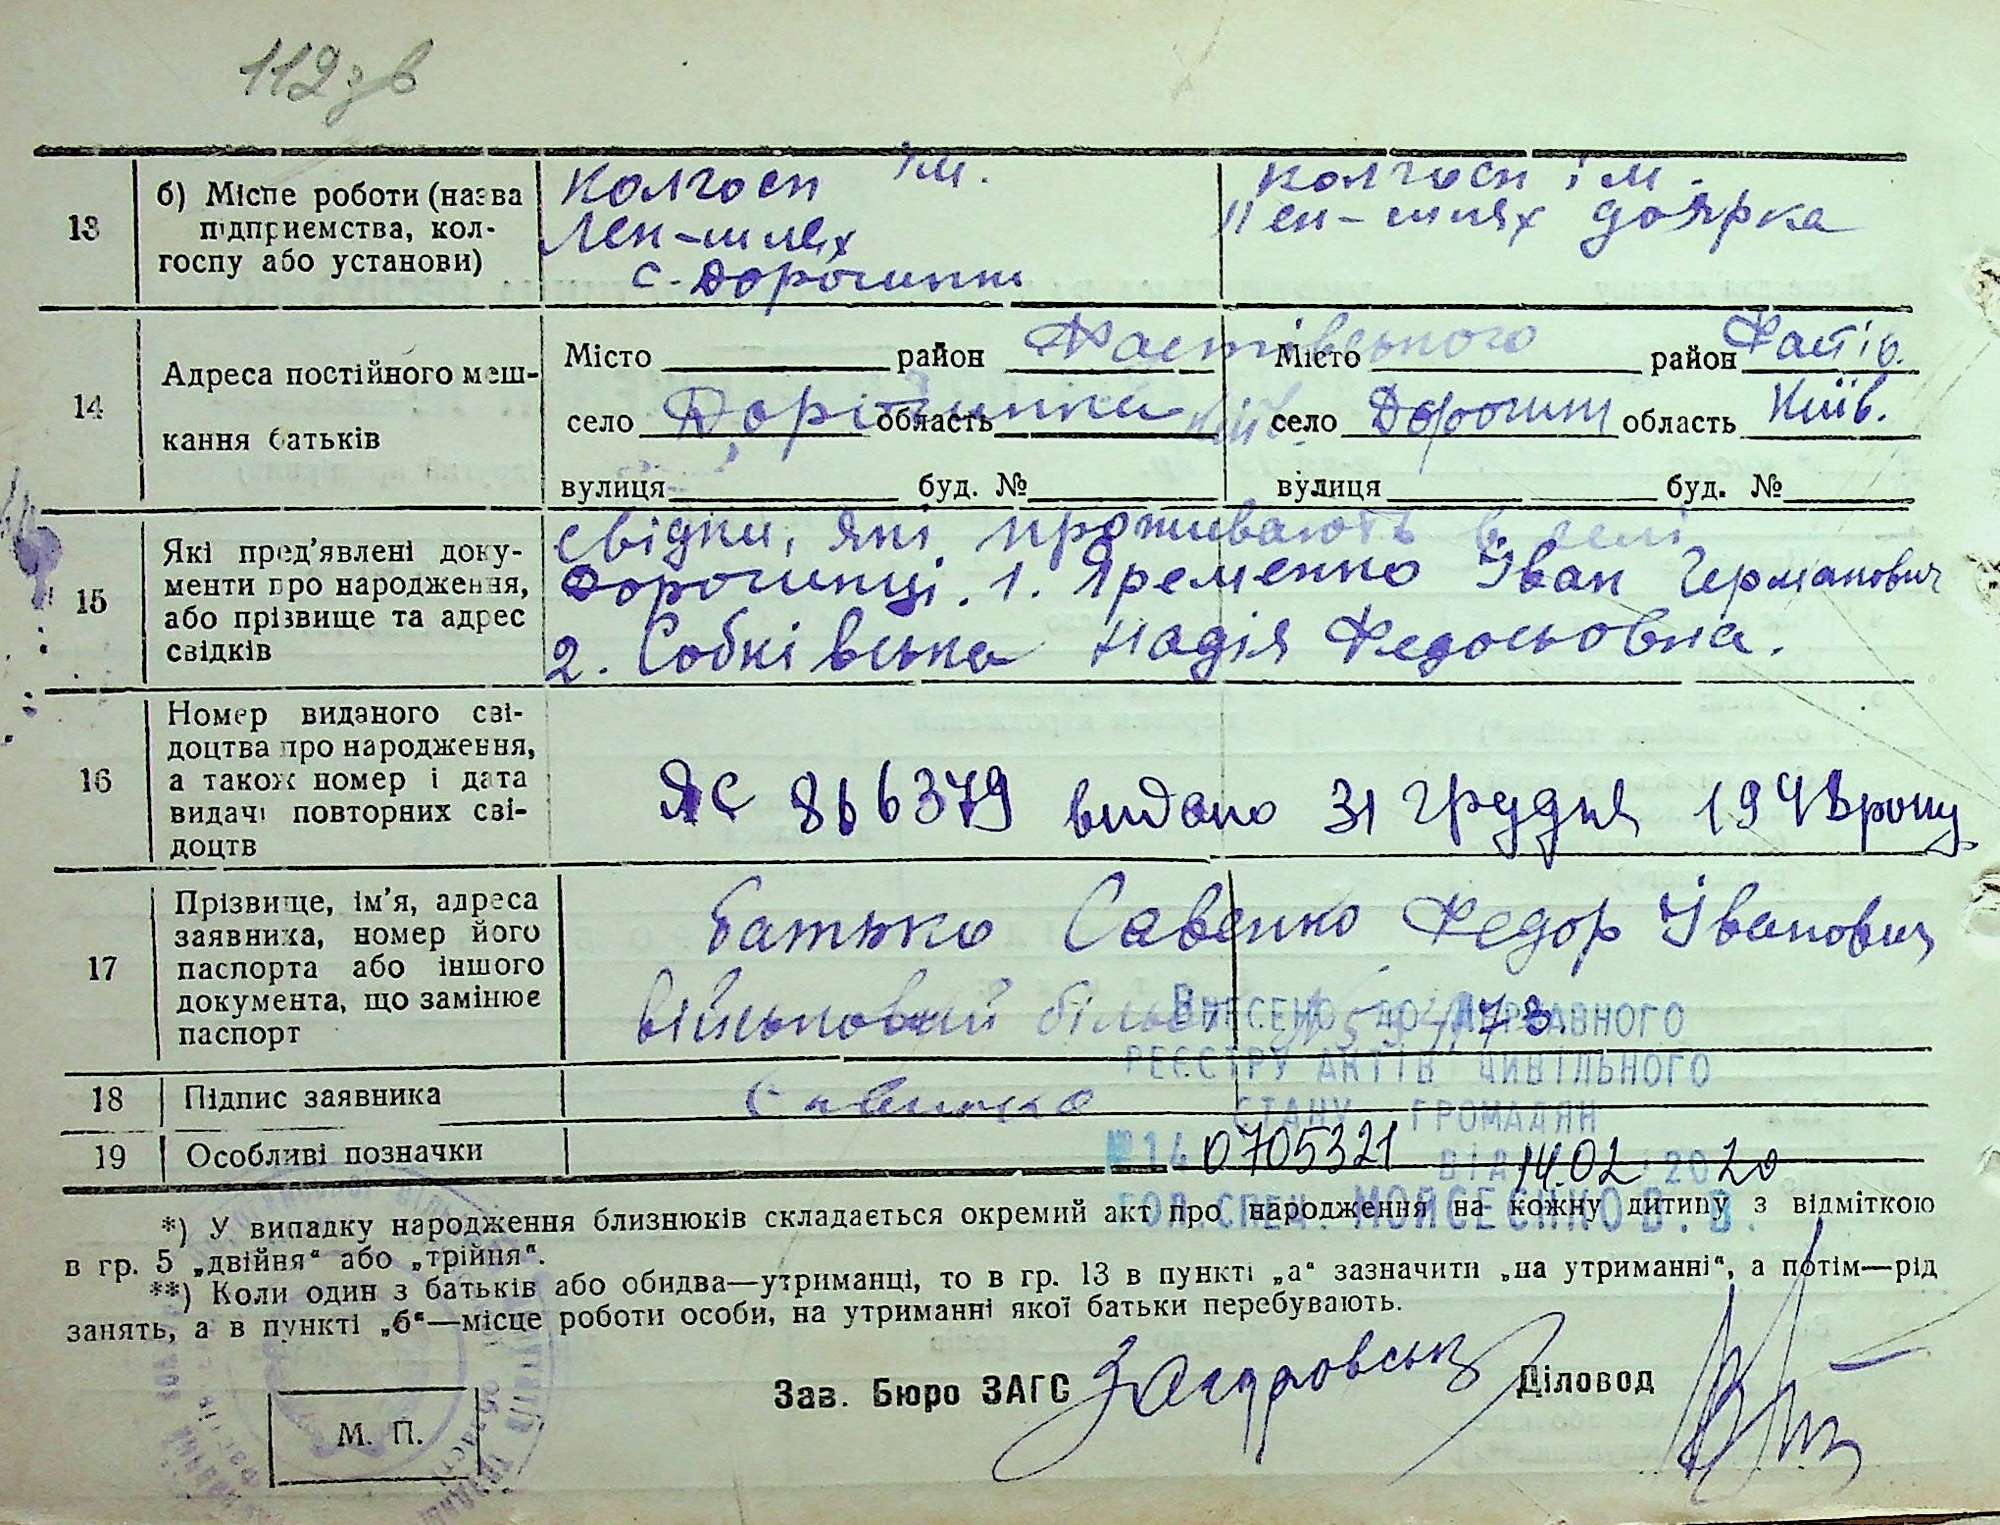 112 зв
13
б) Місце роботи (назва
підприємства, кол-
госпу або установи)
колгосп ім.
Лен-шлях
с. Дорогинки
колгосп ім.
Лен-шлях доярка
14
Адреса постійного меш-
кання батьків
Місто район Фастівського
село Дорогинка область Київ.
вулиця буд. №
Місто район Фастів.
село Дорогинк область Київ.
вулиця буд. №
15
Які пред'явлені доку-
менти про народження,
або прізвище та адрес
свідків
свідки, які проживають в селі
Дорогинці. 1. Яременко Іван Германович
2. Собківська Надія Федосьовна.
16
Номер виданого сві-
доцтва про народження,
а також номер і дата
видачі повторних сві-
доцтв
ЯС 866379 видано 31 грудня 1948 року
17
Прізвище, ім'я, адреса
заявника, номер його
паспорта або іншого
документа, що замінює
паспорт
батько Савенко Федор Іванович
військовий білет
18
Підпис заявника
Савенко
19
Особливі позначки
ВНЕСЕНО ДО ДЕРЖАВНОГО
РЕЄСТРУ АКТІВ ЦИВІЛЬНОГО
СТАНУ ГРОМАДЯН
№ 14 0705321 ВІД 14.02 2020
ГОЛ.СПЕЦ. МОЙСЕЄНКО В.В.
*) У випадку народження близнюків складається окремий акт про народження на кожну дитину з відміткою
в гр. 5 „двійня“ або „трійня“.
**) Коли один з батьків або обидва—утриманці, то в гр. 13 в пункті „а“ зазначити „на утриманні“, а потім—рід
занять, а в пункті „б“—місце роботи особи, на утриманні якої батьки перебувають.
Зав. Бюро ЗАГС Діловод
М. П.